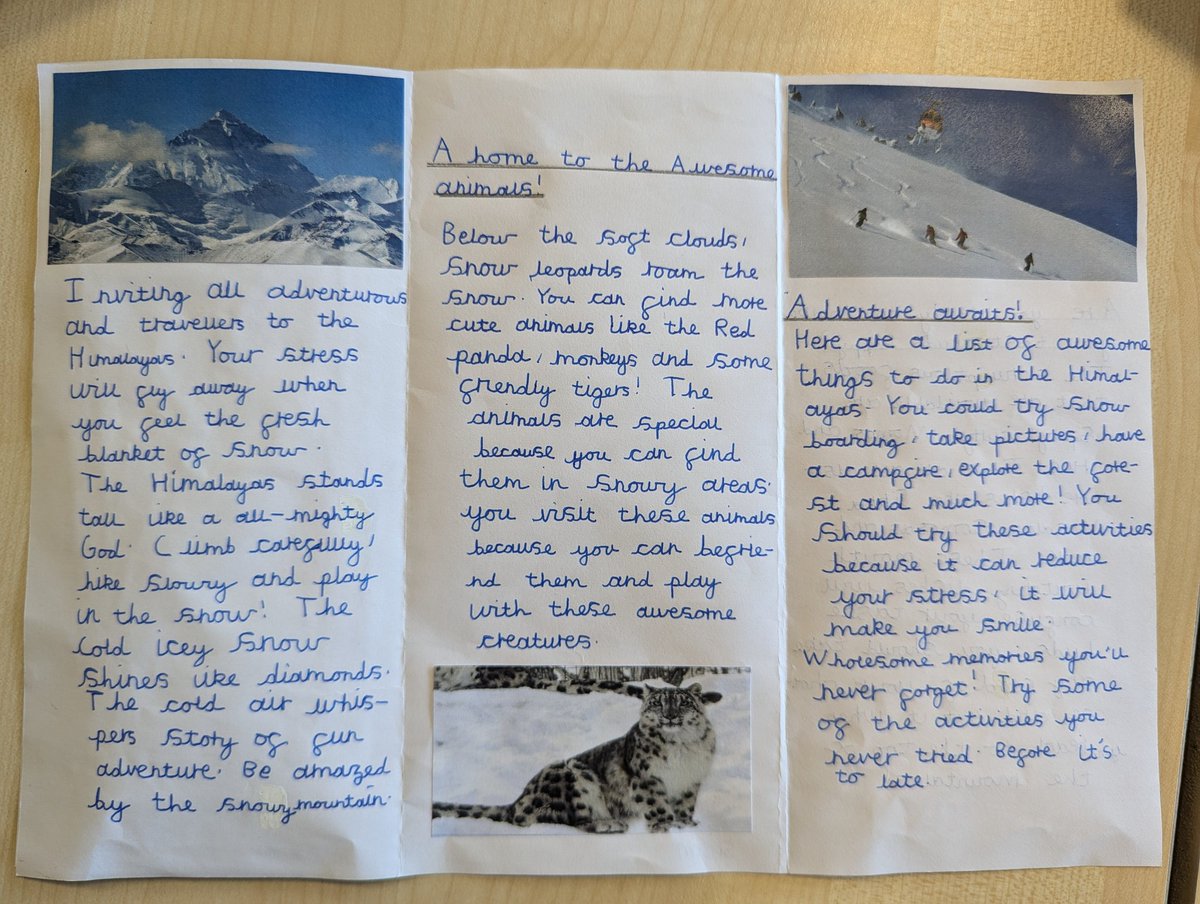 Inviting all adventurous
and travellers to the
Himalayas. Your stress
will fly away when
you feel the fresh
blanket of snow.
The Himalayas stands
tall like a all-mighty
God. Climb carefully,
hike slowly and play
in the snow! The
cold icey snow
shines like diamonds.
The cold air whis-
pers story of fun
adventure. Be amazed
by the snowy mountain.
A home to the Awesome
animals!
Below the soft clouds,
snow leopards roam the
snow. You can find more
cute animals like the Red
panda, monkeys and some
friendly tigers! The
animals are special
because you can find
them in snowy areas.
you visit these animals
because you can befrie-
nd them and play
with these awesome
creatures.
Adventure awaits!
Here are a list of awesome
things to do in the Himal-
ayas. You could try snow
boarding, take pictures, have
a campfire, explore the fore-
st and much more! You
should try these activities
because it can reduce
your stress, it will
make you smile.
Wholesome memories you'll
never forget! Try some
of the activities you
never tried. Before it's
to late.